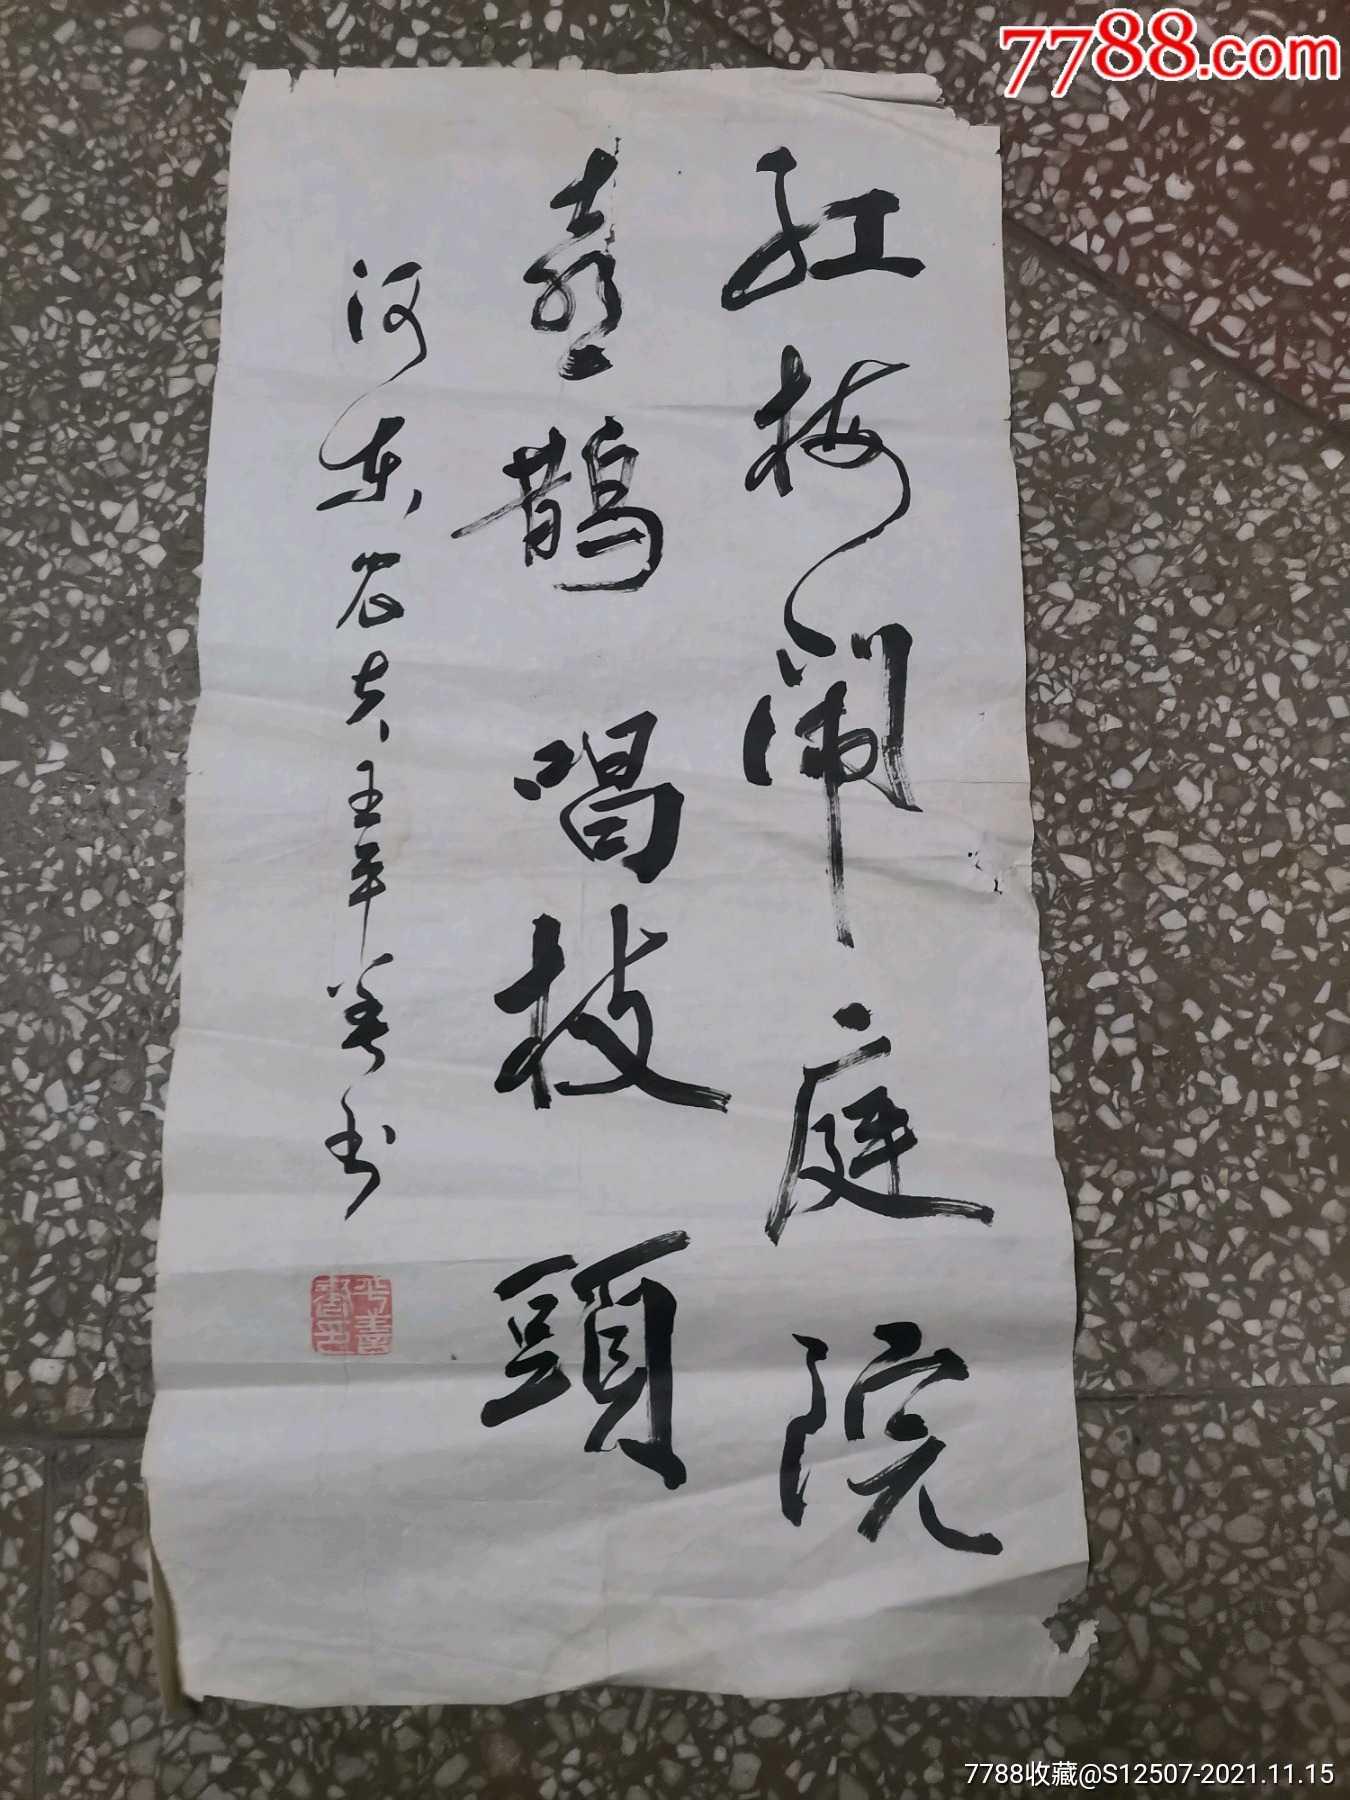 7788.com
红梅闹庭院
喜鹊唱枝頭
河东农夫王平善书
7788收藏@S12507-2021.11.15